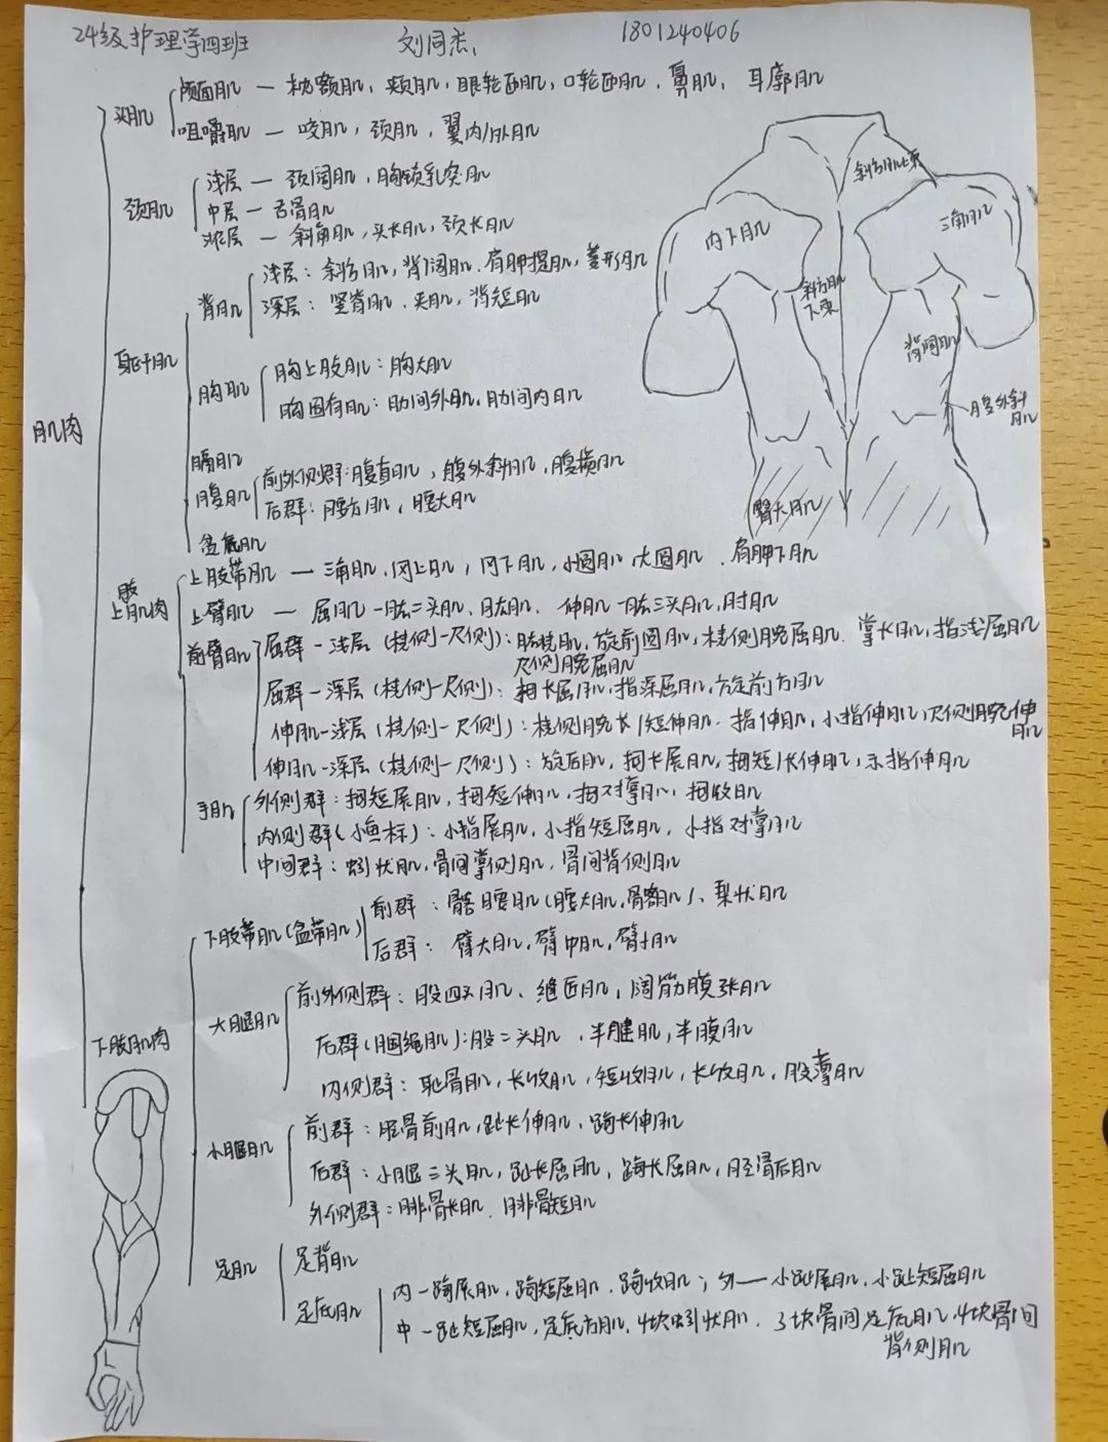 24级护理学四班 刘同杰 1801240406
肌肉
头肌
颅面肌 — 枕额肌, 颊肌, 眼轮匝肌, 口轮匝肌, 鼻肌, 耳廓肌
咀嚼肌 — 咬肌, 颞肌, 翼内/外肌
颈肌
浅层 — 颈阔肌, 胸锁乳突肌
中层 — 舌骨肌
深层 — 斜角肌, 头长肌, 颈长肌
躯干肌
背肌
浅层: 斜方肌, 背阔肌, 肩胛提肌, 菱形肌
深层: 竖脊肌, 夹肌, 背短肌
胸肌
胸上肢肌: 胸大肌
胸固有肌: 肋间外肌, 肋间内肌
膈肌
腹肌
前外侧群: 腹直肌, 腹外斜肌, 腹横肌
后群: 腰方肌, 腰大肌
盆底肌
斜方肌上束
内下肌
三角肌
斜方肌
下束
背阔肌
腹外斜
肌
臀大肌
上肢肌肉
上肢带肌 — 三角肌, 冈上肌, 冈下肌, 小圆肌, 大圆肌, 肩胛下肌
上臂肌 — 屈肌 — 肱二头肌, 肱肌, 伸肌 — 肱三头肌, 肘肌
前臂肌
屈群 - 浅层 (桡侧-尺侧): 肱桡肌, 旋前圆肌, 桡侧腕屈肌, 掌长肌, 指浅屈肌
尺侧腕屈肌
屈群 - 深层 (桡侧-尺侧): 拇长屈肌, 指深屈肌, 旋前方肌
伸肌-浅层 (桡侧-尺侧): 桡侧腕长/短伸肌, 指伸肌, 小指伸肌, 尺侧腕伸
肌
伸肌-深层 (桡侧-尺侧): 旋后肌, 拇长展肌, 拇短/长伸肌, 示指伸肌
手肌
外侧群: 拇短展肌, 拇短伸肌, 拇对掌肌, 拇收肌
内侧群(小鱼标): 小指展肌, 小指短屈肌, 小指对掌肌
中间群: 蚓状肌, 骨间掌侧肌, 骨间背侧肌
下肢肌肉
下肢带肌(盆带肌)
前群: 髂腰肌(腰大肌, 骨额肌), 梨状肌
后群: 臀大肌, 臀中肌, 臀小肌
大腿肌
前外侧群: 股四头肌, 缝匠肌, 阔筋膜张肌
后群(腘绳肌): 股二头肌, 半腱肌, 半膜肌
内侧群: 耻骨肌, 长收肌, 短收肌, 长收肌, 股薄肌
小腿肌
前群: 胫骨前肌, 趾长伸肌, 踇长伸肌
后群: 小腿三头肌, 趾长屈肌, 踇长屈肌, 胫骨后肌
外侧群: 腓骨长肌, 腓骨短肌
足肌
足背肌
足底肌
内 — 踇展肌, 踇短屈肌, 踇收肌; 外 — 小趾展肌, 小趾短屈肌
中 — 趾短屈肌, 足底方肌, 4块蚓状肌, 3块骨间足底肌, 4块骨间
背侧肌